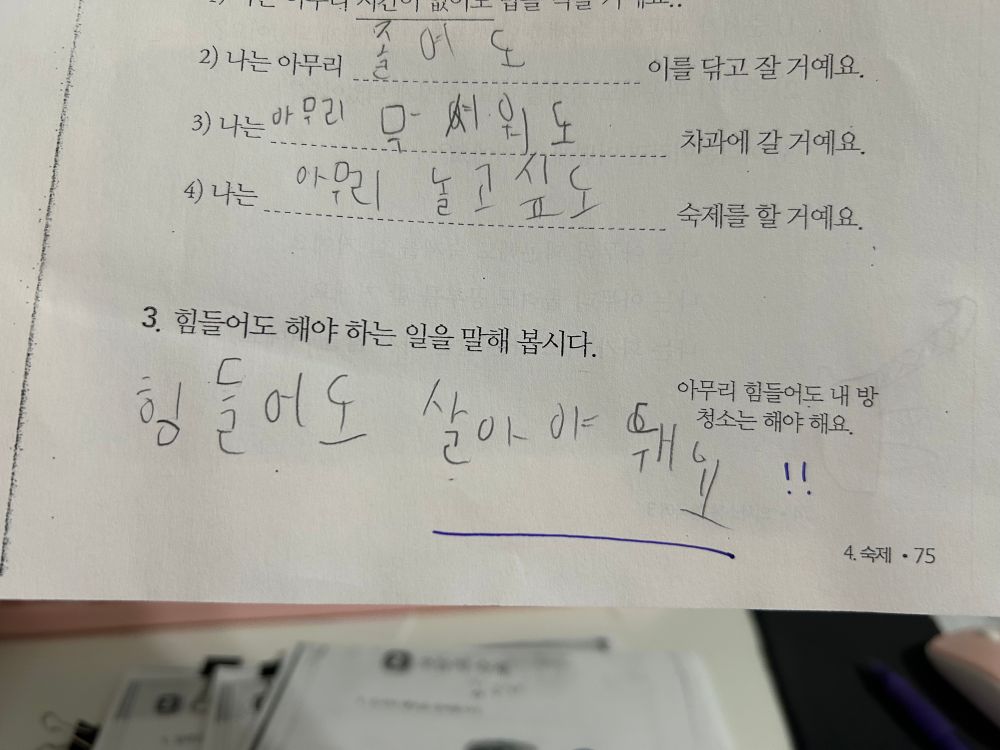 1) 나는 아무리 시간이 없어도 밥을 먹을 거예요.
2) 나는 아무리 졸여도 이를 닦고 잘 거예요.
3) 나는 아무리 무서워도 치과에 갈 거예요.
4) 나는 아무리 놀고싶도 숙제를 할 거예요.
3. 힘들어도 해야 하는 일을 말해 봅시다.
아무리 힘들어도 내 방
청소는 해야 해요.
힘들어도 살아야 돼요 !!
4. 숙제 • 75